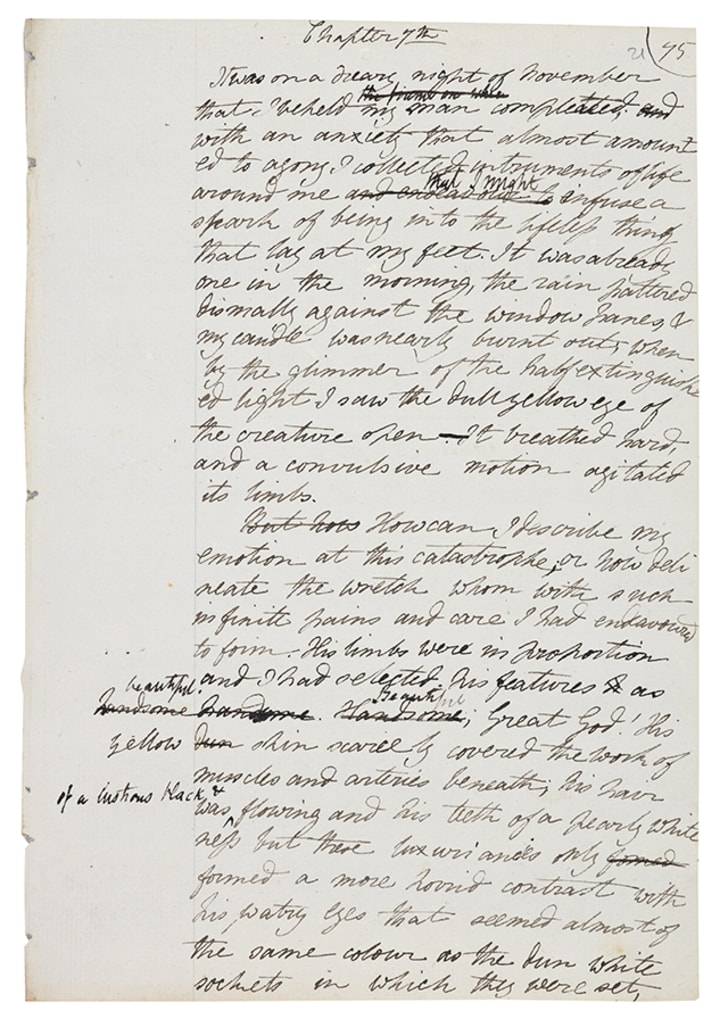 Chapter 7th
21
95
It was on a dreary night of November
the frame on whic
that I beheld my man compleated. and
with an anxiety that almost amount
ed to agony I collected instruments of life
that I might
around me and endeavour to infuse a
spark of being into the lifeless thing
that lay at my feet. It was already
one in the morning, the rain pattered
dismally against the window panes, &
my candle was nearly burnt out, when
by the glimmer of the half extinguish
ed light I saw the dull yellow eye of
the creature open — It breathed hard,
and a convulsive motion agitated
its limbs.
But how How can I describe my
emotion at this catastrophe, or how deli
neate the wretch whom with such
infinite pains and care I had endavoured
to form. His limbs were in proportion
beautiful. and I had selected his features & as
Beautiful
handsome handsome. Handsome; Great God! His
yellow dun skin scarcely covered the work of
muscles and arteries beneath; his hair
of a lustrous black &
was flowing and his teeth of a pearly white
ness but these luxuriances only formed
formed a more horrid contrast with
his watry eyes that seemed almost of
the same colour as the dun white
sockets in which they were set,